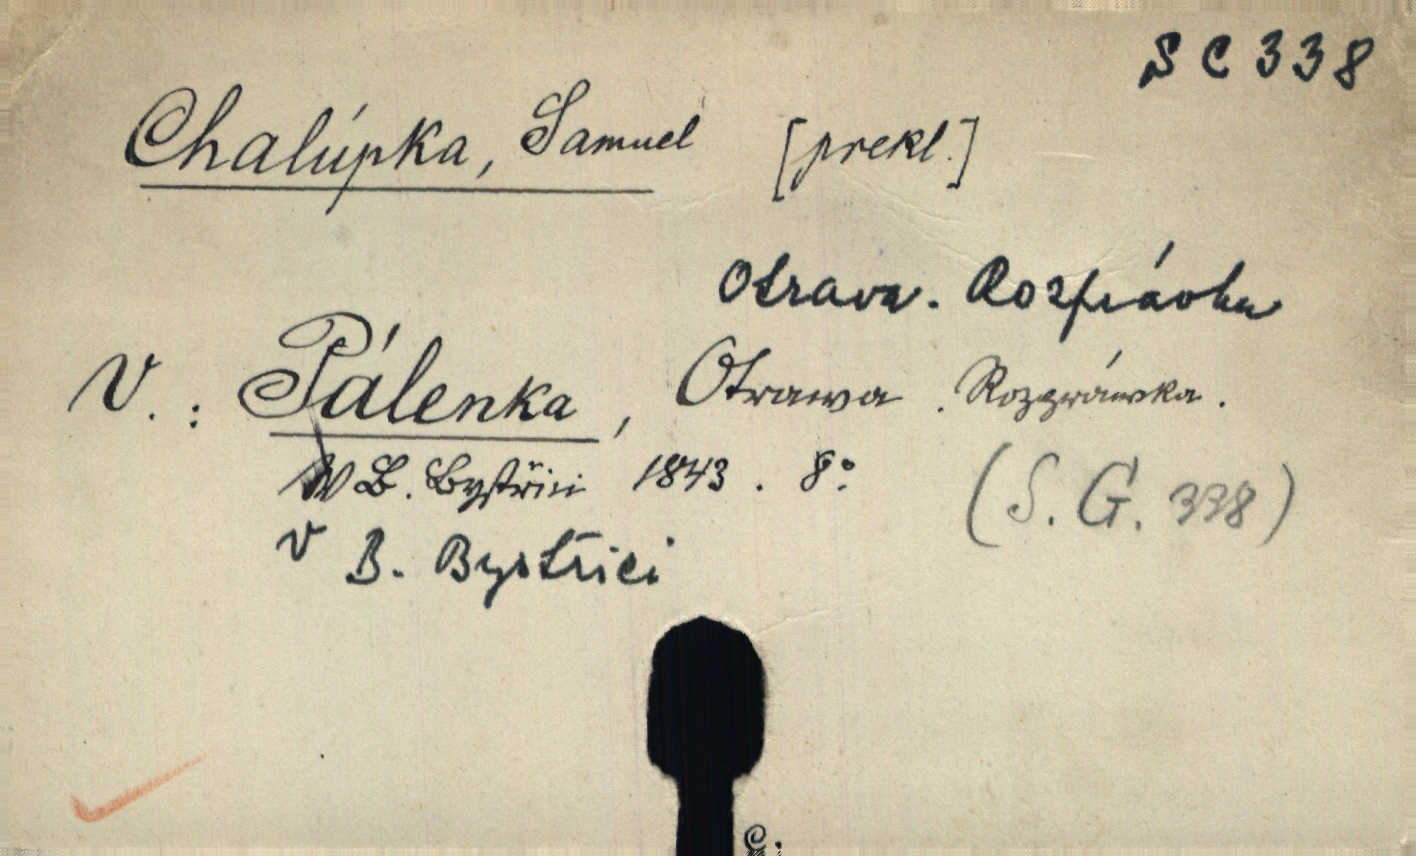 SC 338
Chalúpka, Samuel [prekl.]
Otrava. Rozprávka
V.: Pálenka, Otrawa. Rozpráwka.
W B. Bystřici 1843. 8°.
(S. G. 338)
v B. Bystřici